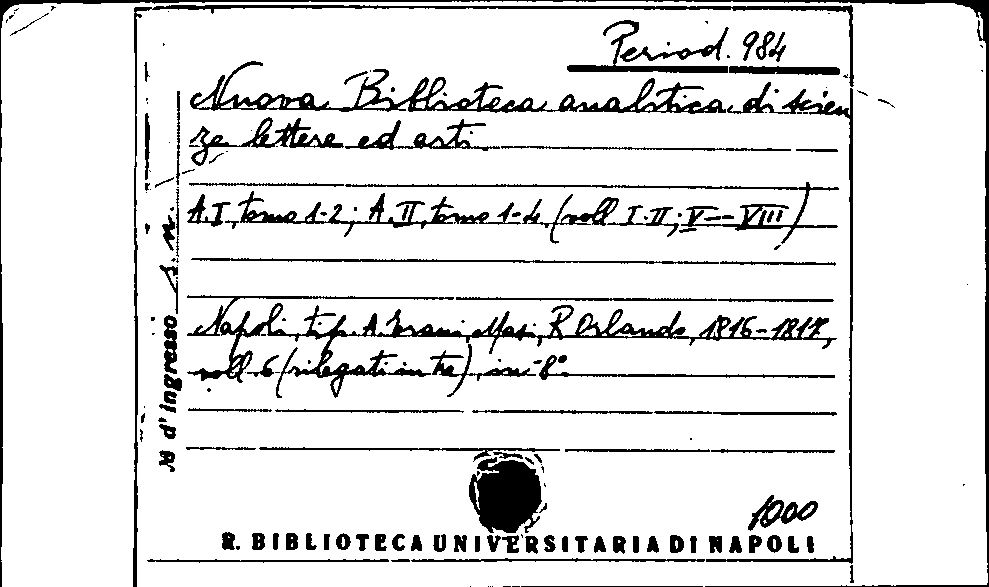 Period. 984
Nuova Biblioteca analitica di scien
ze lettere ed arti.
A. I, tomo 1-2; A. II, tomo 1-4 (voll I-II; V-VIII)
Napoli, tip. A. Trani, Masi, R Orlando, 1816-1817,
voll. 6 (rilegati in tre), in-8°.
№ d'ingresso s. n.
1000
R. BIBLIOTECA UNIVERSITARIA DI NAPOLI